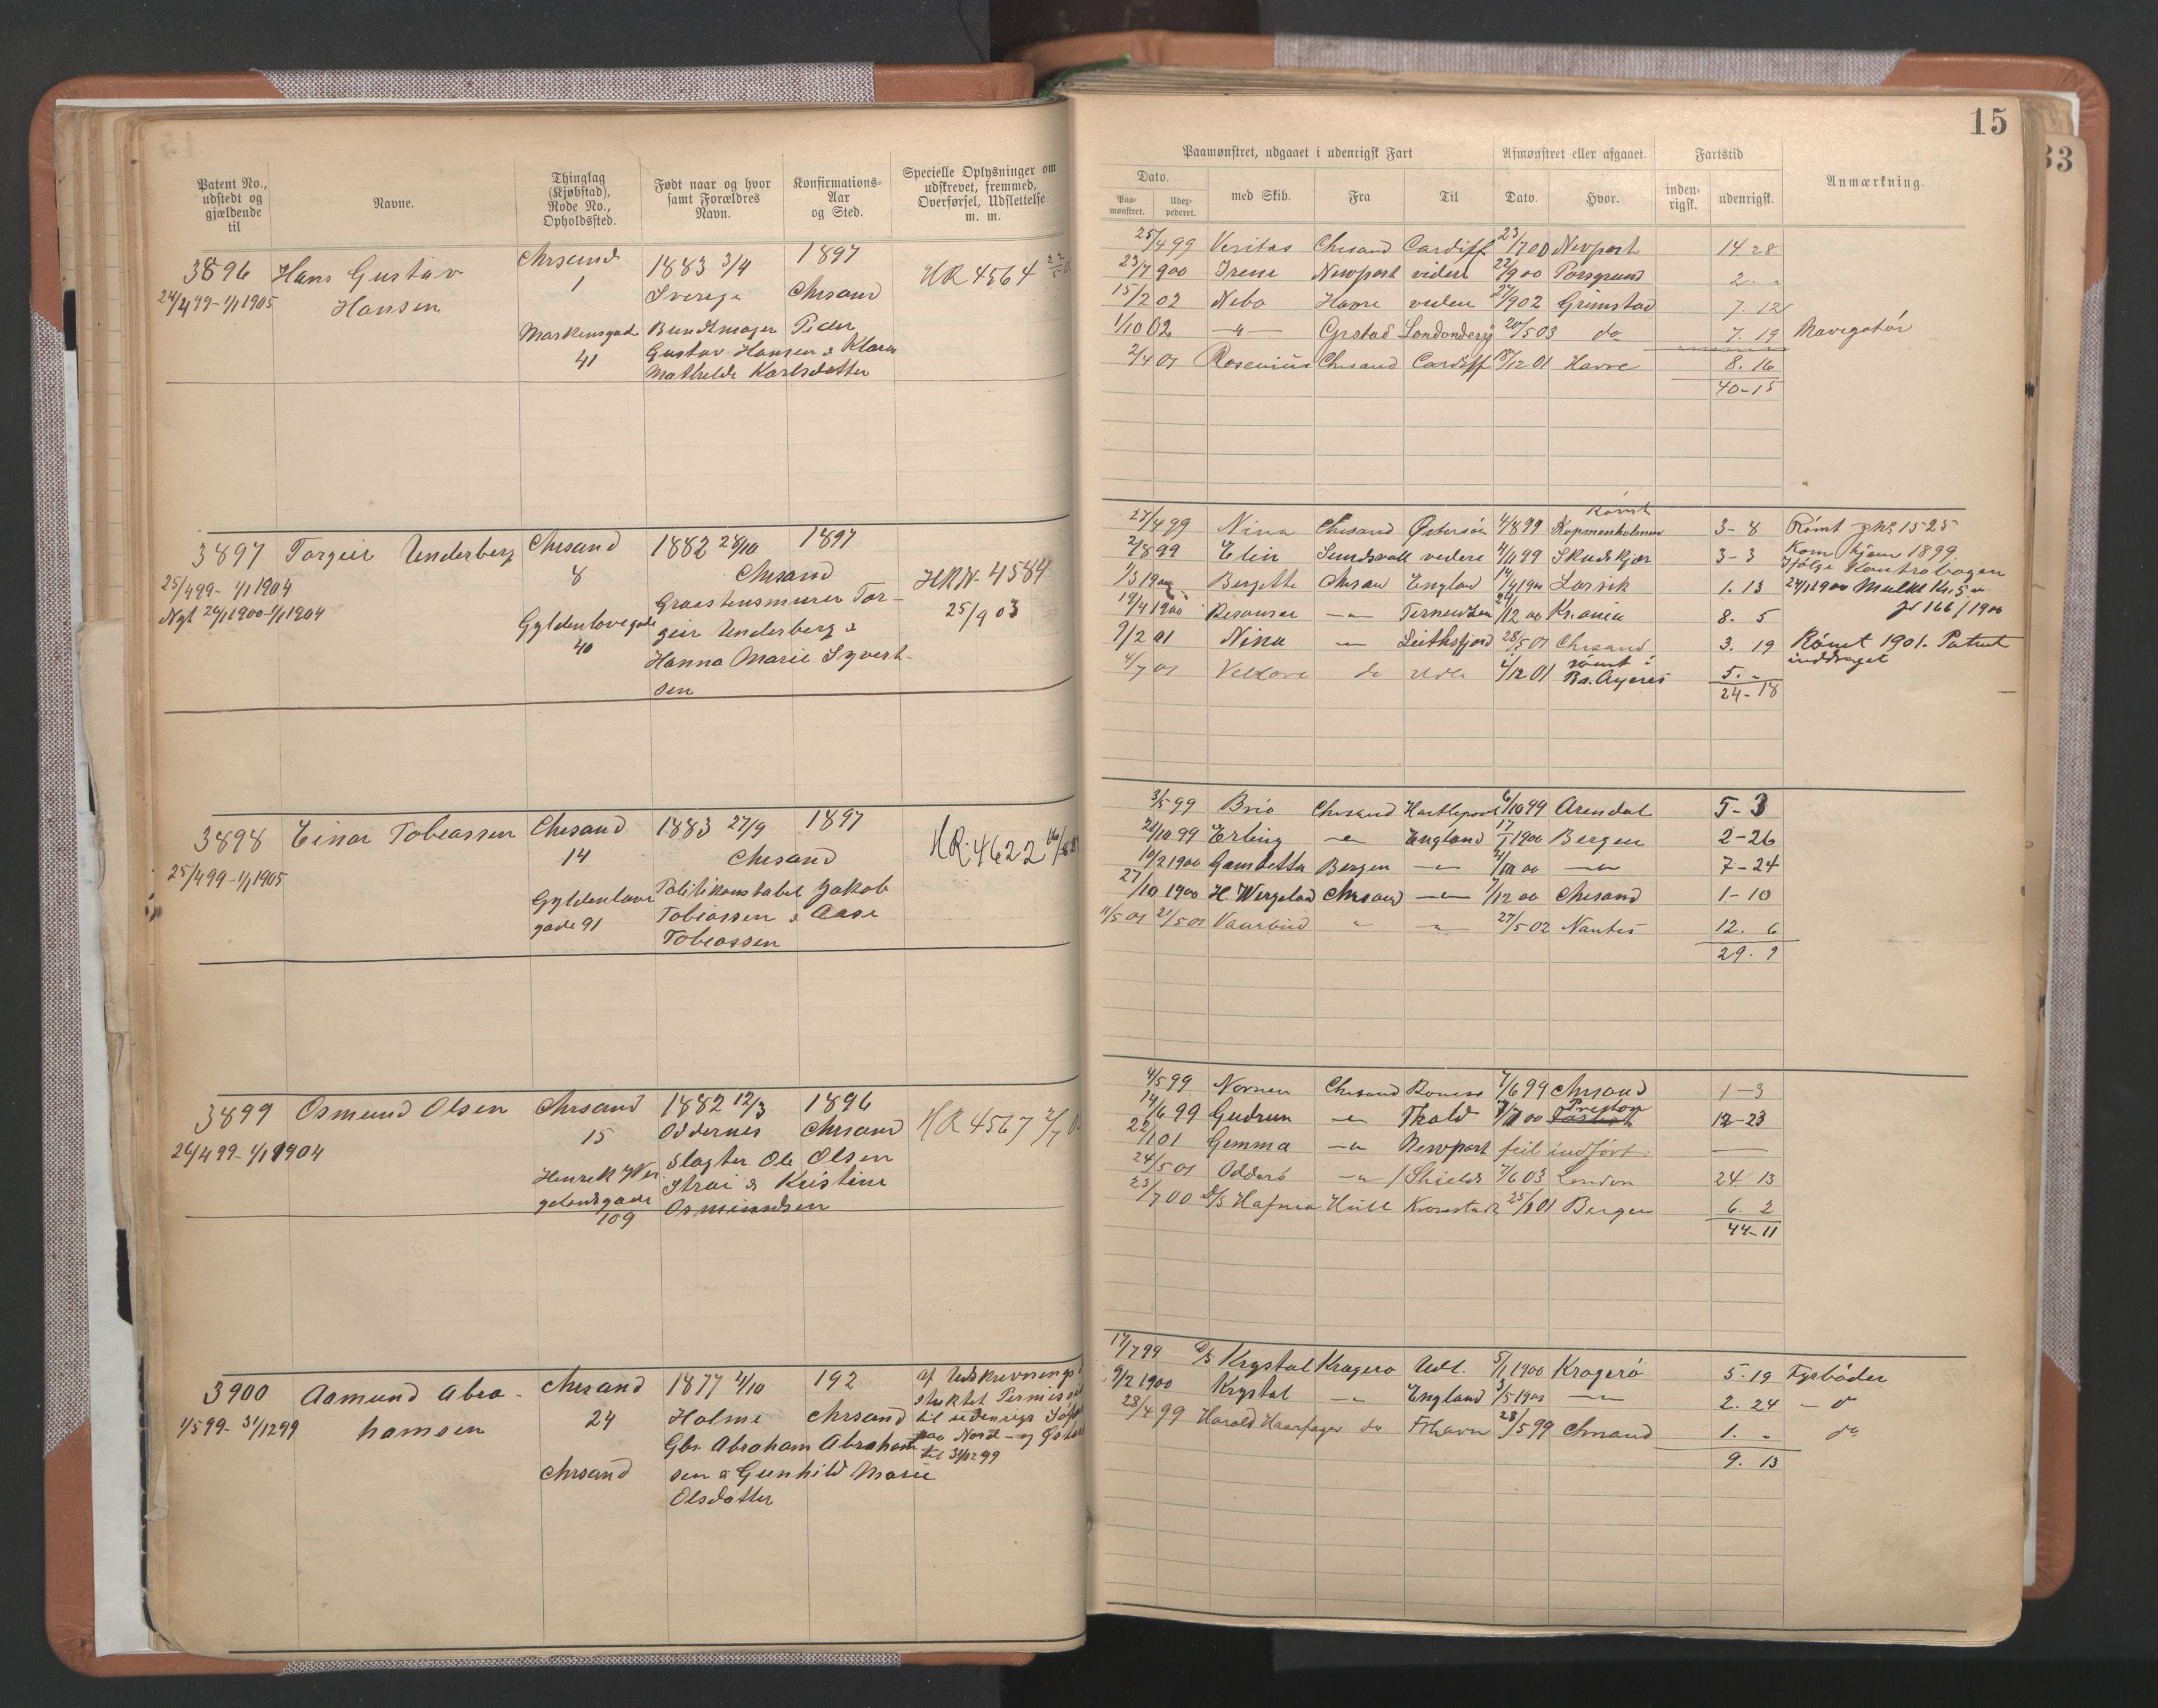 15
33
Patent No., udstedt og gjældende til
Navne.
Thinglag (Kjøbstad), Rode No., Opholdssted.
Født naar og hvor samt Forældres Navn.
Konfirmations-Aar og Sted.
Specielle Oplysninger om udskrevet, fremmed, Overførsel, Udslettelse m. m.
Paamønstret, udgaaet i udenrigsk Fart
Afmønstret eller afgaaet.
Fartstid
Anmærkning.
Dato.
Paa-mønstret.
Udex-pederet.
med Skib.
Fra
Til
Dato.
Hvor.
inden-rigsk.
udenrigsk.
3896 Hans Gustav Chrsand 1883 3/4 1897 HR 4564
24/4 99 - 1/1 1905 Hansen 1 Sverige Chrsand
Markensgade Bundtmager Peder
41 Gustav Hansen & Klara
Mathilde Karlsdatter
25/4 99 Veritas Chrsand Cardiff 23/7 00 Newport 14. 28
23/7 900 Irene Newport videre 22/9 00 Porsgrund 2. "
15/2 02 Nebo Havre videre 27/9 02 Grimstad 7. 12
1/10 02 — " — Grstad Londonderry 20/5 03 do 7. 19 Navigatør
2/4 01 Rosenius Chrsand Cardiff 18/12 01 Havre 8. 16
40-15
3897 Torgeir Underberg Chrsand 1882 28/10 1897
25/4 99 - 1/1 1904 8 Chrsand HRN. 4584
Nyt 24/1 1900 - 1/1 1904 Gyldenlovegade Graastensmurer Tor- 25/9 03
40 geir Underberg &
Hanna Marie Syvert-
sen
Rømt
27/4 99 Nina Chrsand Østersøen 4/8 99 Kopmanholmen 3-8 Rømt 1525
2/8 99 Elin Sundsvall videre 4/11 99 Skudskjær 3-3 Kom hjem 1899.
1/3 1900 Bergette Chrsan England 14/4 1900 Larvik 1. 13 Ifølge Kontrabogen
24/1 1900 Mulkt Kr. 5
19/4 1900 — " — Terneuzen 24/12 00 Kr.ania 8. 5 166/1900
9/2 01 Nina — Leithsfjord 28/5 01 Chrsand 3. 19 Rømt 1901. Patent inddraget
4/7 01 do Udl. 1/12 01 rømt: Bs. Ayeres 5. "
24-18
3898 Einar Tobiassen Chrsand 1883 27/9 1897 HR. 4622
25/4 99 - 1/1 1905 14 Chrsand
Gyldenlove Politikonstabel Jakob
gade 91 Tobiassen & Aase
Tobiassen
3/5 99 Brio Chrsand Hartlepool 6/10 99 Arendal 5-3
20/10 99 Erling — " England 17/1 1900 Bergen 2-26
10/2 1900 Gambetta Bergen — " — — " 7-24
27/10 1900 H. Wergeland Chrsand — " — 7/12 00 Chrsand 1-10
11/5 01 21/5 01 Vaarbud " — " 27/5 02 Nantes 12. 6
29. 9
3899 Osmund Olsen Chrsand 1882 12/3 1896 HR 4567
26/4 99 - 1/1 1904 15 Oddernes Chrsand
Henrik Wer Slagter Ole Olsen
gelandsgade Strai & Kristine
109 Osmundsen
4/5 99 Nornen Chrsand Boness 7/6 99 Chrsand 1-3
14/6 99 Gudrun — " Thold Preston 12-23
22/1 01 Gemma — " Newport feil indført.
24/5 01 Odderø — " Shields 7/6 03 London 24 13
23/7 00 D/S Hafnia Hull Kronstadt 25/1 01 Bergen 6. 2
44-11
3900 Aamund Abra- Chrsand 1877 4/10 192 af Udskrivnings
1/5 99 - 31/12 99 hamsen 24 Holme Chrsand til udenrigs
Gbr. Abraham Abraham paa Nord- og Øster
Chrsand sen & Gunhild Marie til 31/12 99
Olsdatter
17/7 99 D/S Krystal Kragerø Udl. 5/1 1900 Kragerø 5. 19 Fyrbøder
9/2 1900 Krystal — " England 3/5 1900 — " — 2. 24 — d
28/4 99 Harald Haarfager do Frhavn 28/5 99 Chrsand 1. " do
9. 13